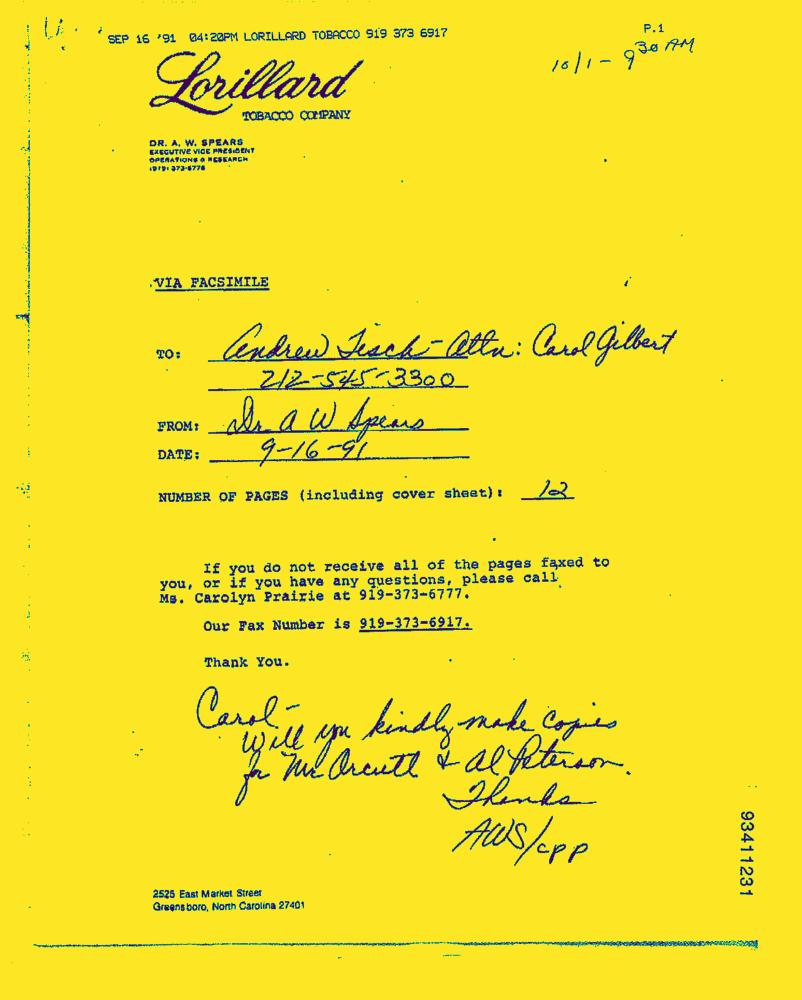 SEP 16 '91 04:20PM LORILLARD TOBACCO 919 373 6917 P.1
10/1 - 9 30 AM
Lorillard
TOBACCO COMPANY
DR. A. W. SPEARS
EXECUTIVE VICE PRESIDENT
OPERATIONS & RESEARCH
(919) 373-6776
VIA FACSIMILE
TO: Andrew Tisch - Attn: Carol Gilbert
212-545-3300
FROM: Dr A W Spears
DATE: 9-16-91
NUMBER OF PAGES (including cover sheet): 12
If you do not receive all of the pages faxed to
you, or if you have any questions, please call
Ms. Carolyn Prairie at 919-373-6777.
Our Fax Number is 919-373-6917.
Thank You.
Carol -
Will you kindly make copies
for Mr Orcutt & Al Peterson.
Thanks
AWS/cpp
93411231
2525 East Market Street
Greensboro, North Carolina 27401